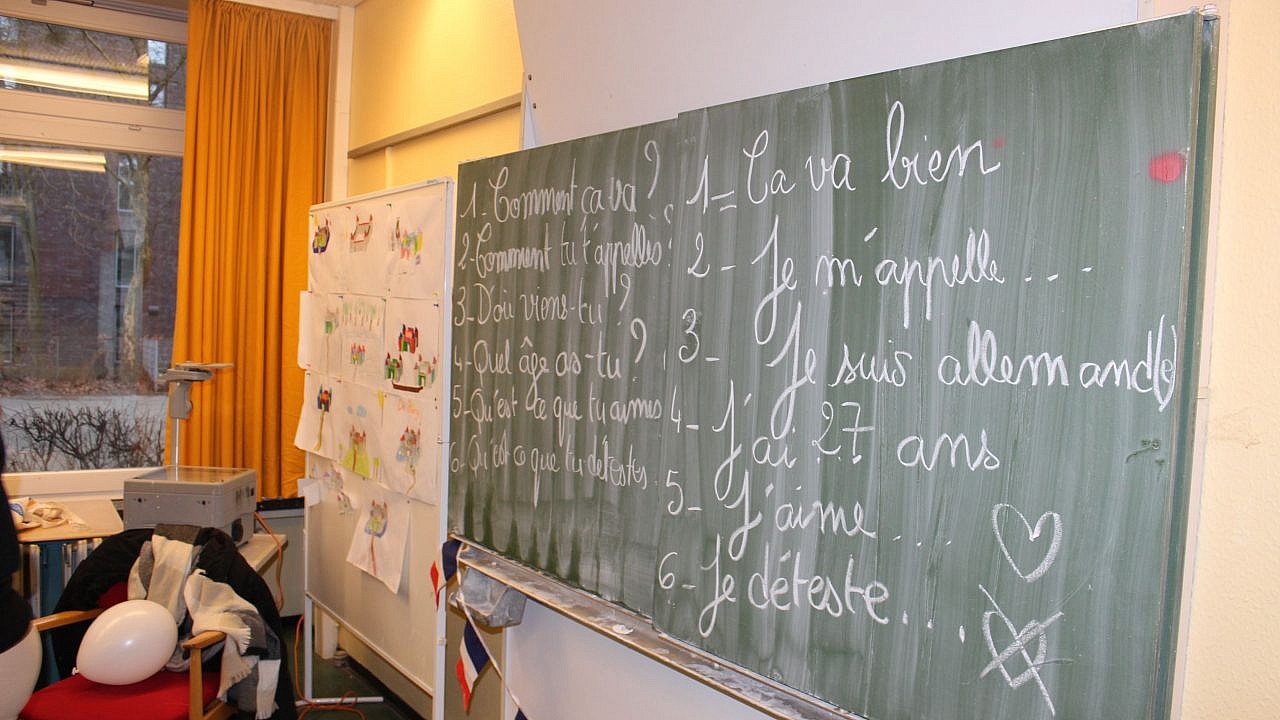 1- Comment ça va ?
2- Comment tu t'appelles ?
3- D'où viens-tu ?
4- Quel âge as-tu ?
5- Qu'est ce que tu aimes
6- Qu'est ce que tu détestes.
1= Ça va bien
2- Je m'appelle ...
3- Je suis allemand(e)
4- J'ai 27 ans
5- J'aime ....
6- Je déteste ....